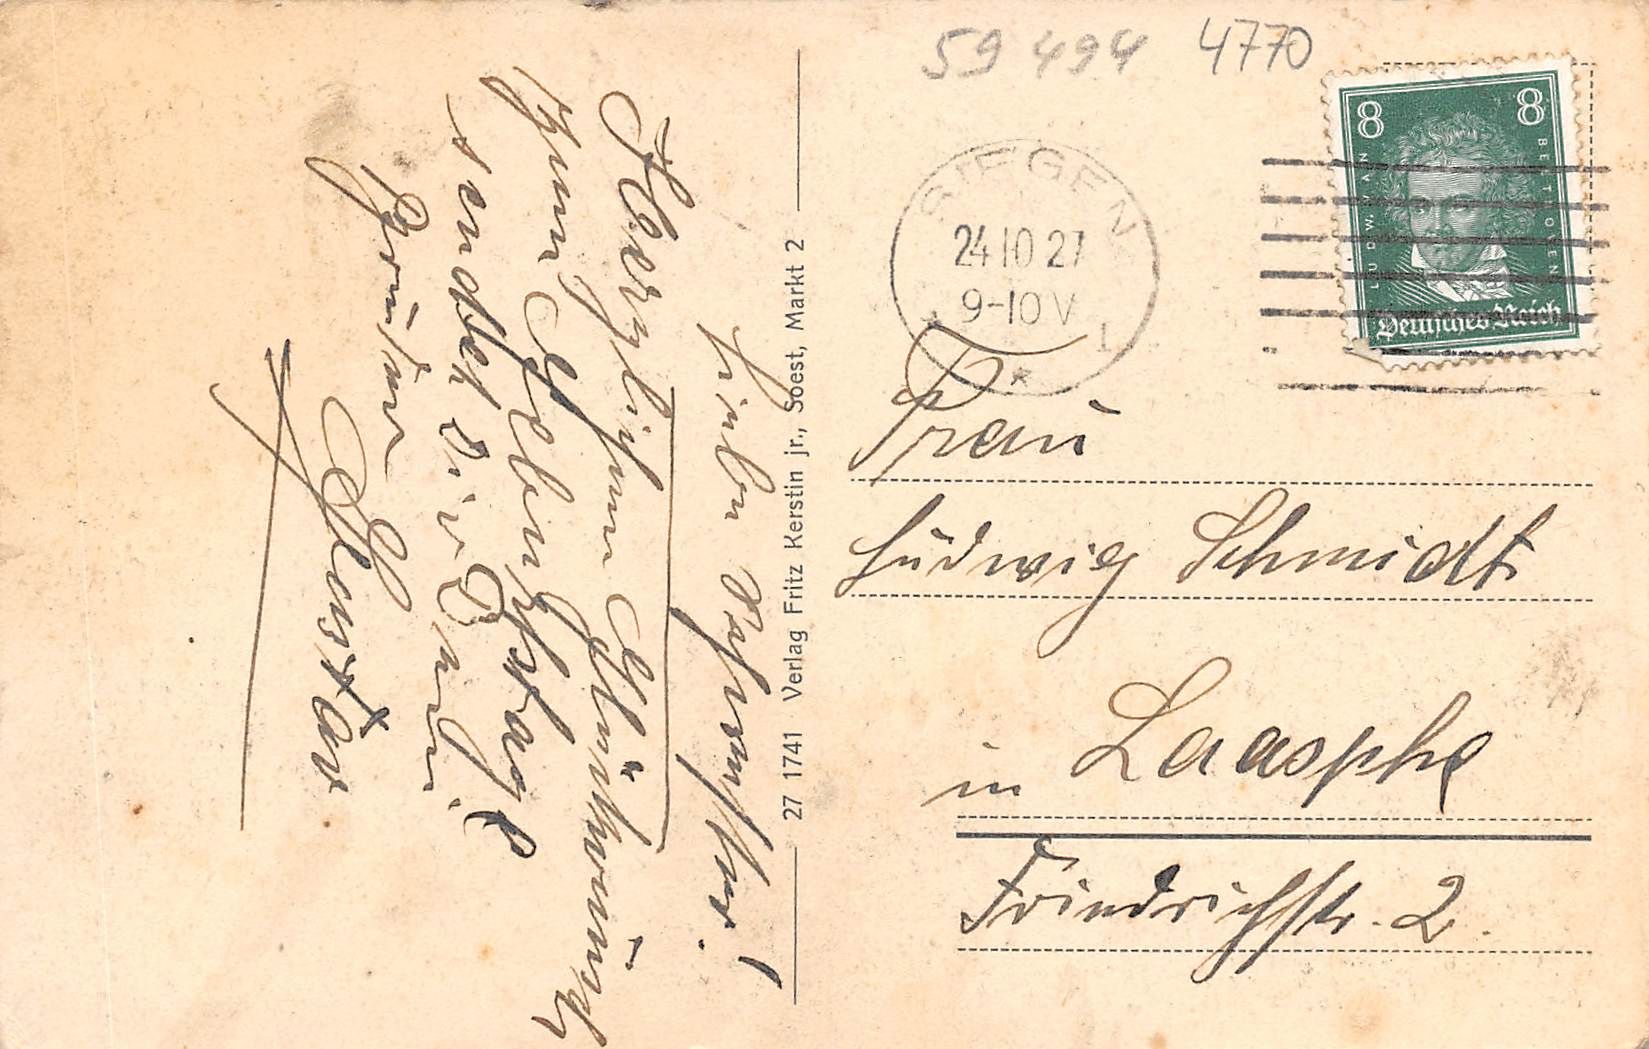 59 494 4770
8 8
LUDW. VAN BEETHOVEN
Deutsches Reich
SIEGEN
24.10.27
9-10 V
* 1
Frau
Ludwig Schmidt
in Laasphe
Friedrichstr. 2.
27 1741 Verlag Fritz Kerstin jr., Soest, Markt 2
Lieben Schwester!
Herzlichen Glückwunsch
zum Geburtstage
sendet Dir Dein
Bruder
Gustav